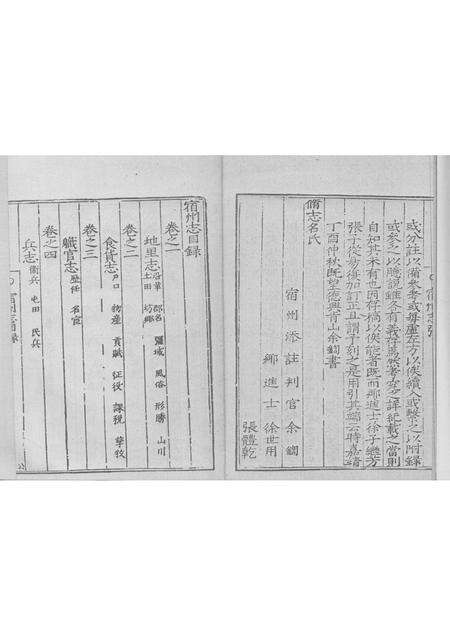 或分註以備參考或每盧左方以俟續入或繫之以附録
或參之以臆說雖各有義存焉然考究之詳征載之當則
自知其未有也因存稿以俟能者既而鄉進士徐子繼芳
張子從易復加訂正且謂予刻之是用引其端云時嘉靖
丁酉仲秋既望德興青山余鍧書
脩志名氏
宿州添註判官余鍧
鄉進士徐世用
張體乾
宿州志目録
卷之一
地里志 沿革 郡名 疆域 風俗 形勝 山川
土田 坊鄉
卷之二
食貨志 戸口 物產 貢賦 征役 課税 孳牧
卷之三
職官志 歴任 名宦
卷之四
兵志 衞兵 屯田 民兵